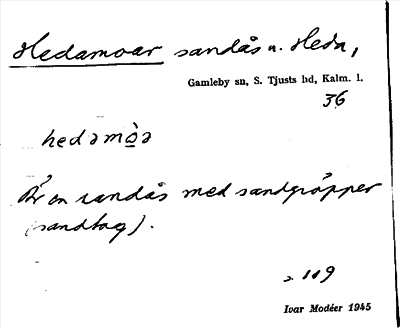 Hedamoar sandås n. Heda,
Gamleby sn, S. Tjusts hd, Kalm. l.
36
hedəmo̠̊ə
Är en sandås med sandgropper
(sandtag).
s. 119
Ivar Modéer 1945